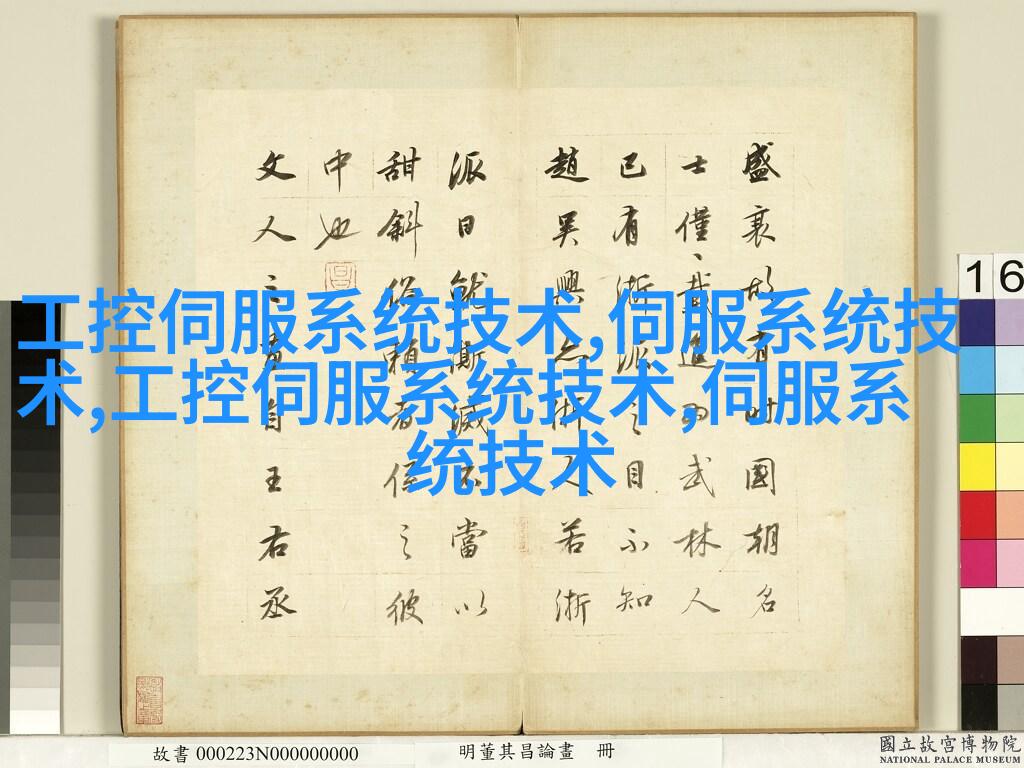 盛衰故有時國朝名
士僅、戴進為武林人
已有浙派之目不知
趙吳興亦浙人若浙
派日就澌滅不當以
甜斜俗賴者係之彼
中也
文人之畫自王右丞
工控伺服系统技术,伺服系统技
术,工控伺服系统技术,伺服系
统技术
16
故書 000223N000000000
明董其昌論畫 冊
國立故宮博物院
NATIONAL PALACE MUSEUM